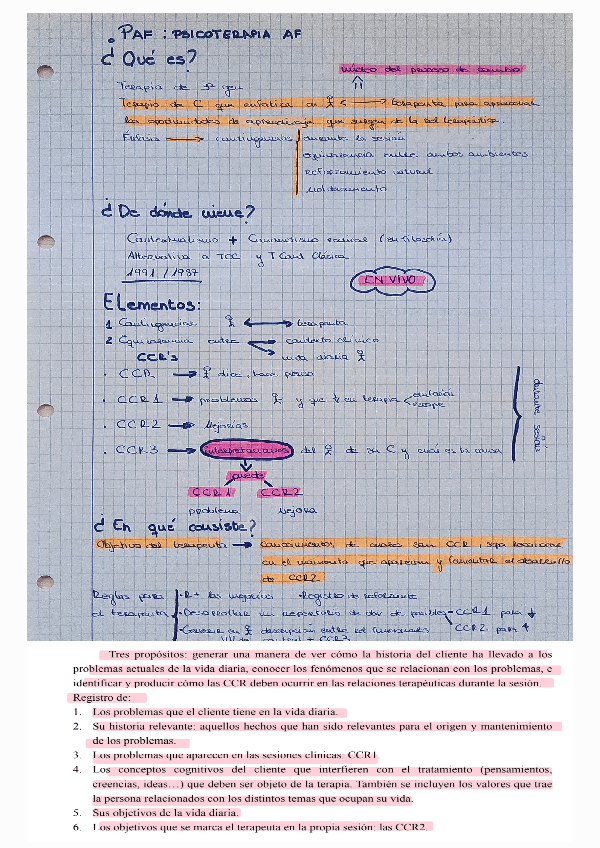 PAF : PSICOTERAPIA AF
¿Qué es?
núcleo del proceso de cambio
Terapia de 3ª gen
Terapia de C que enfatiza en Ψ < → terapeuta para aprovechar
las oportunidades de aprendizaje que surgen de la rel terapéutica.
Énfasis → contingencias durante la sesión
Equivalencia entre ambos ambientes
Reforzamiento natural
Moldeamiento
¿De dónde viene?
Contextualismo + Conductismo radical (su filosofía)
Alternativa a TCC y T Cond Clásica
1991 / 1987
EN VIVO
Elementos:
1 Contingencias Ψ ↔ terapeuta
2 Equivalencia entre → contexto clínico
CCR'S → vida diaria
· CCR → dice, hace, piensa
· CCR 1 → problemas y que en terapia
· CCR 2 → Mejorías
· CCR 3 → interpretaciones del de su C y cuál es la causa
durante sesión
puede
CCR1 CCR2
problema Mejora
¿En qué consiste?
Objetivo del terapeuta → Conocimientos de cuáles son CCR, sepa
en el momento que aparecen y fomentar el desarrollo
de CCR2
Reglas para · R+ las mejorías · Registro de
el terapeuta · Desarrollar un repertorio de de posibles CCR1 para ↓
CCR2 para ↑
· Generar en descripción entre
+ CCR3
Tres propósitos: generar una manera de ver cómo la historia del cliente ha llevado a los
problemas actuales de la vida diaria, conocer los fenómenos que se relacionan con los problemas, e
identificar y producir cómo las CCR deben ocurrir en las relaciones terapéuticas durante la sesión.
Registro de:
1. Los problemas que el cliente tiene en la vida diaria.
2. Su historia relevante: aquellos hechos que han sido relevantes para el origen y mantenimiento
de los problemas.
3. Los problemas que aparecen en las sesiones clínicas: CCR1
4. Los conceptos cognitivos del cliente que interfieren con el tratamiento (pensamientos,
creencias, ideas…) que deben ser objeto de la terapia. También se incluyen los valores que trae
la persona relacionados con los distintos temas que ocupan su vida.
5. Sus objetivos de la vida diaria.
6. Los objetivos que se marca el terapeuta en la propia sesión: las CCR2.